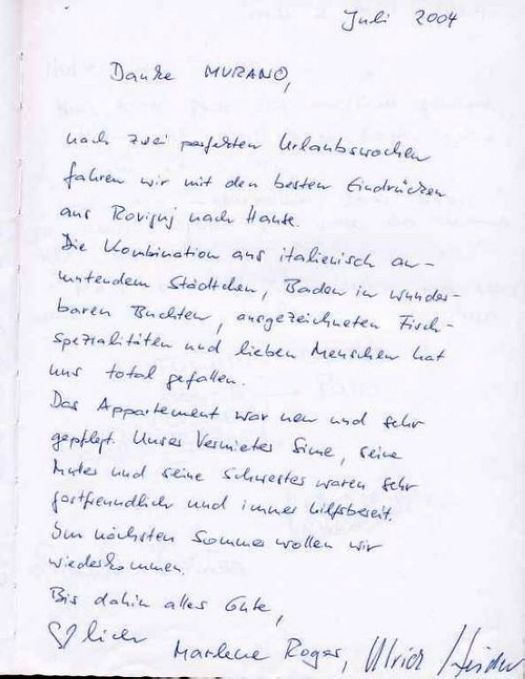 Juli 2004
Danke MURANO,
nach zwei perfekten Urlaubswochen
fahren wir mit den besten Eindrücken
aus Rovinj nach Hause.
Die Kombination aus italienisch an-
mutendem Städtchen, Baden in wunder-
baren Buchten, ausgezeichneten Fisch-
spezialitäten und lieben Menschen hat
uns total gefallen.
Das Appartement war neu und sehr
gepflegt. Unser Vermieter Sime, seine
Mutter und seine Schwester waren sehr
gastfreundlich und immer hilfsbereit.
Im nächsten Sommer wollen wir
wiederkommen.
Bis dahin alles Gute,
♡lich
Marlene Roger, Ulrich